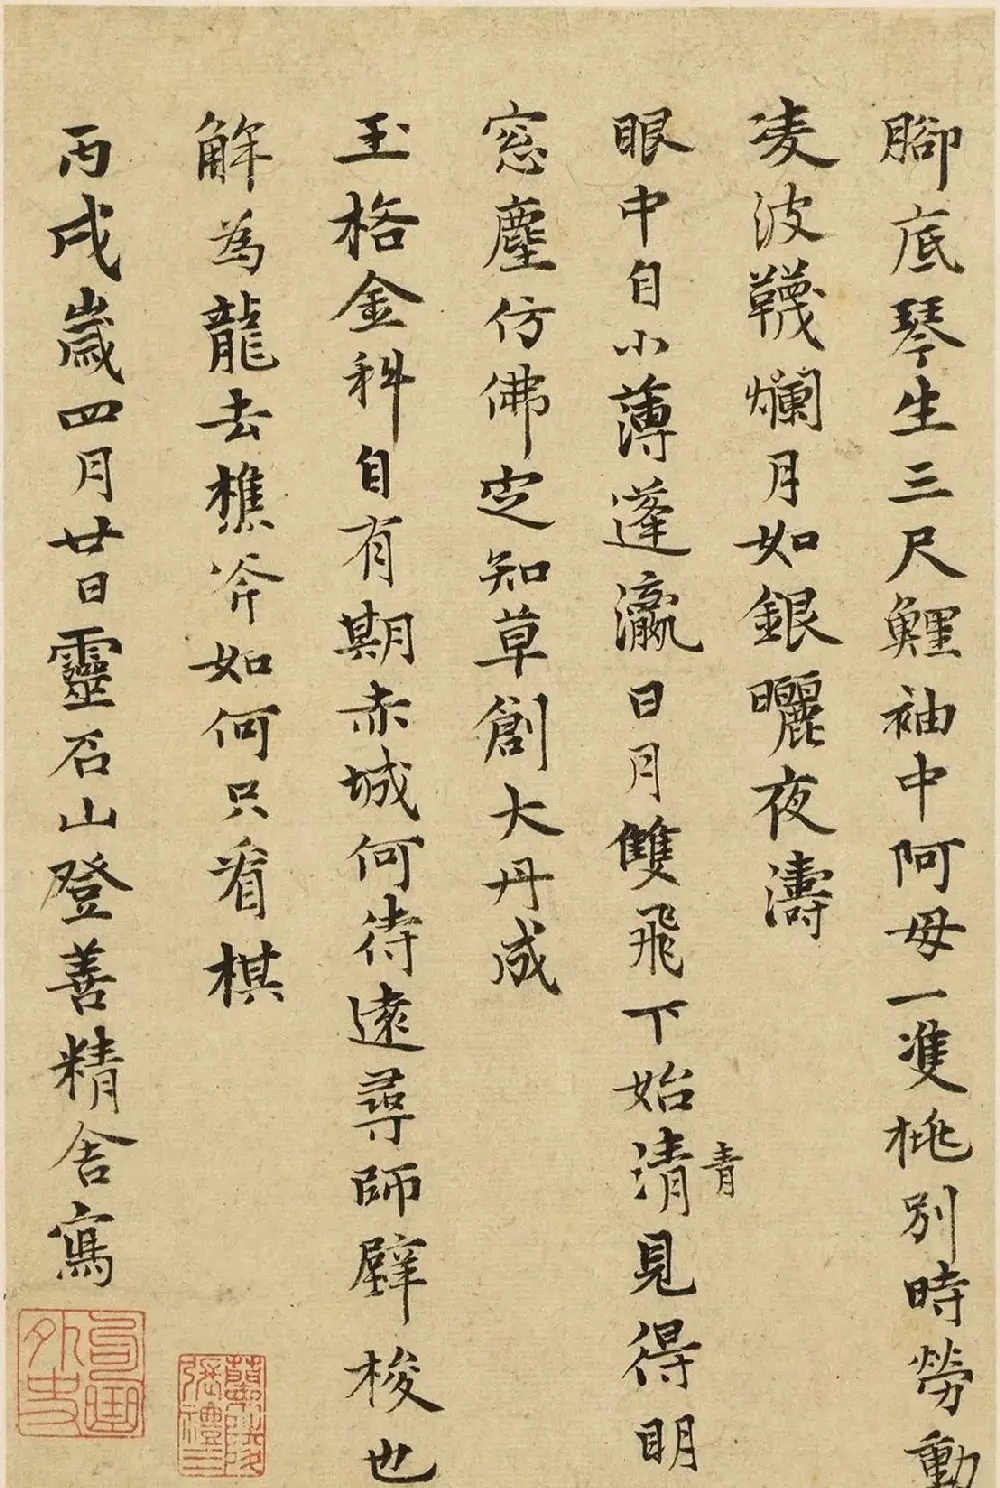 腳底琴生三尺鯉袖中阿母一雙桃別時勞動
凌波韈爛月如銀曬夜濤
眼中自小薄蓬瀛日月雙飛下始清見得明
青
窓塵仿佛是知草創大丹成
玉格金科自有期赤城何待遠尋師壁梭也
解為龍去樵斧如何只看棋
丙戌歲四月廿日靈石山登善精舍寫
句曲外史
蘭陵張禮